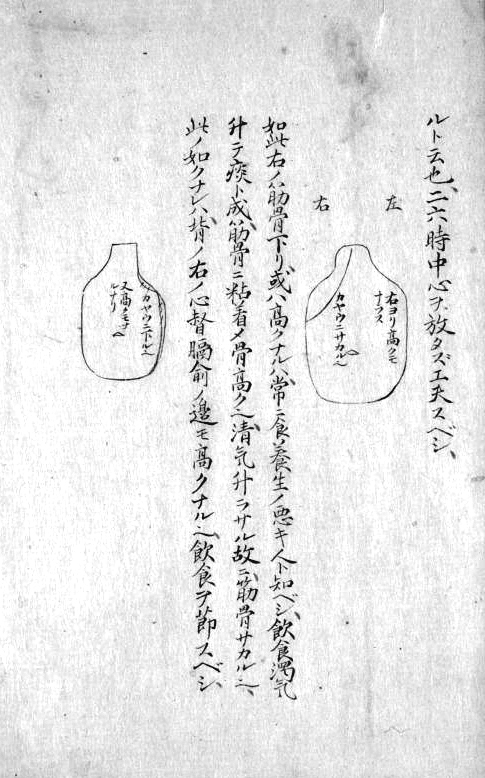 ルト云也、二六時中心ヲ放タズ工夫スベシ、
左
右
右ヨリ高クモ
ナラス
カヤウニサカル也
如此右ノ筋骨下リ或ハ高クナルハ常ニ食養生ノ悪キ人ト知ベシ、飲食濁気
升テ痰ト成、筋骨ニ粘着メ骨高ク也、清気升ラサル故ニ筋骨サカル也、
此ノ如クナレハ、背ノ右ノ心督膈俞ノ邉モ高クナル也、飲食ヲ節スベシ、
カヤウニ下ル也
又高クモナ
ルナリ